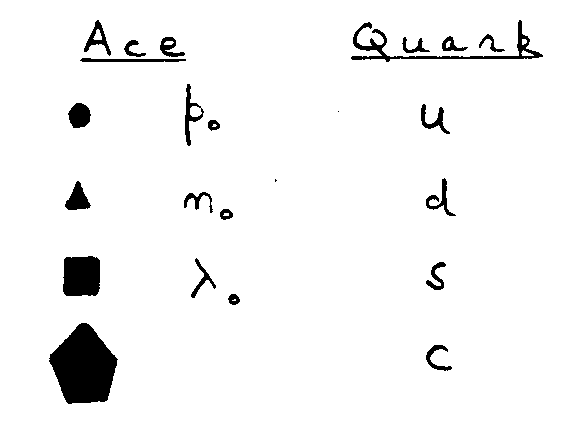 Ace Quark
p₀ u
n₀ d
λ₀ s
c